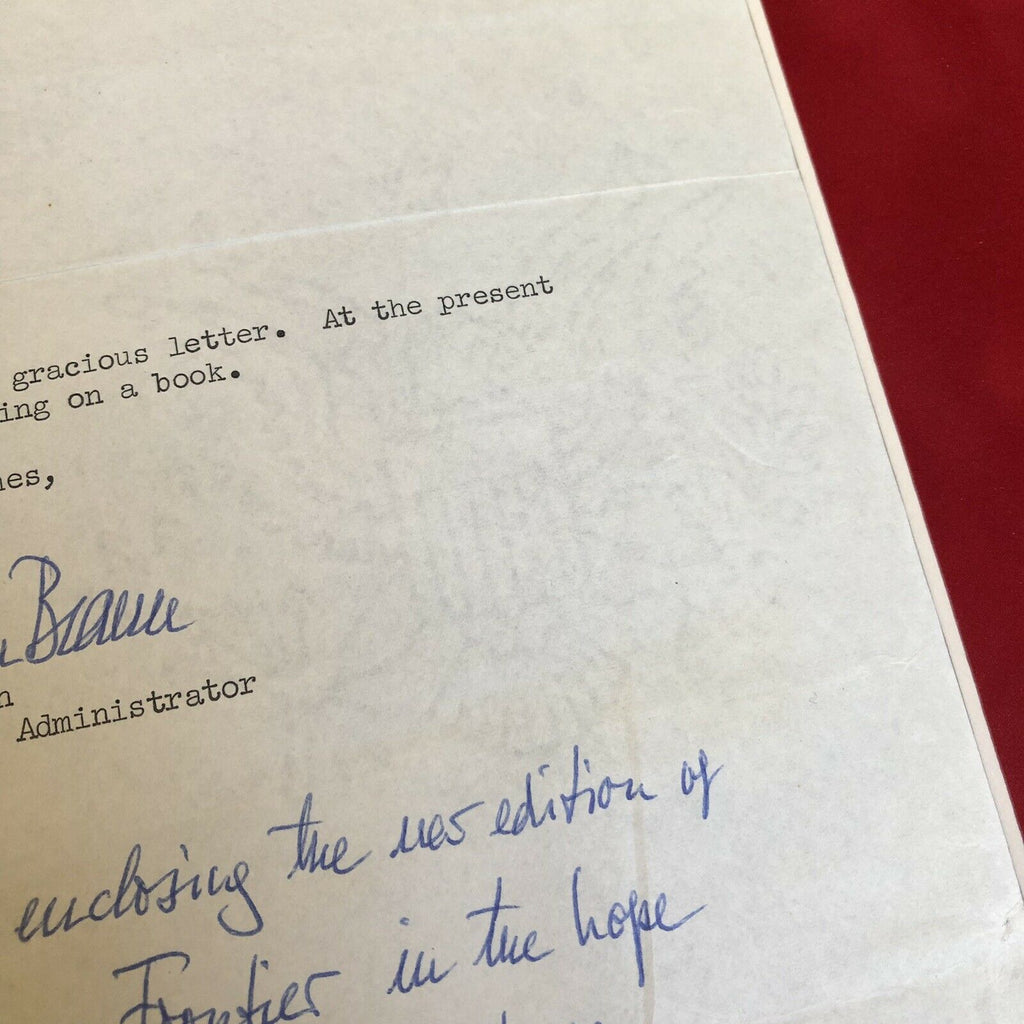 gracious letter. At the present
ing on a book.
es,
Braun
n
Administrator
enclosing the new edition of
Frontier in the hope